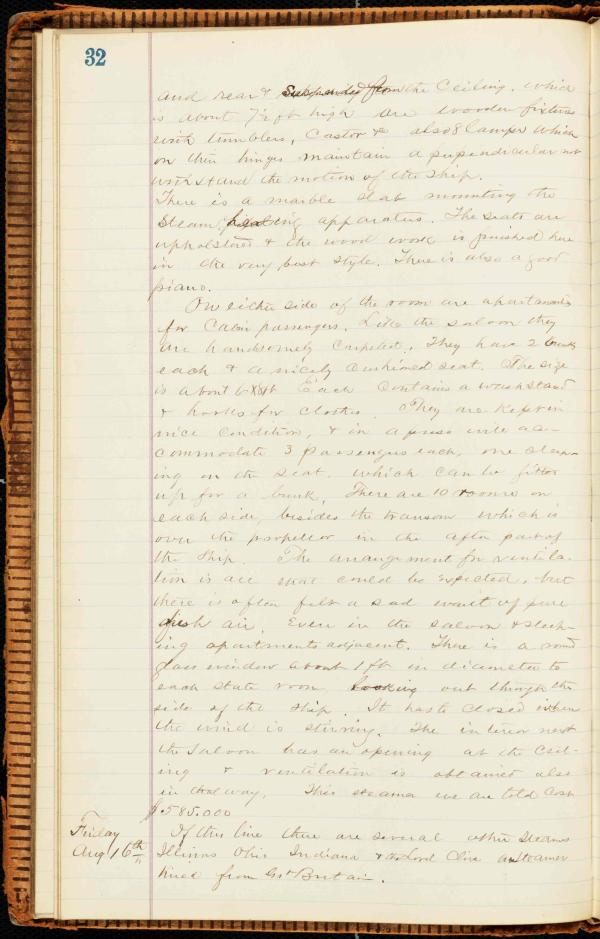 32
and rear & Suspended from the Ceiling. which
is about 7½ ft high are wooden fixtures
with tumblers, Castor &c also 8 lamps which
on their hinges maintain a perpendicular not
withstand the motion of the Ship.
There is a marble slab mounting the
Steam heating apparatus. The seats are
upholstered & the wood work is finished here
in the very best style. There is also a good
piano.
On either side of the room are apartments
for Cabin passengers. Like the saloon they
are handsomely Carpeted. They have 2 bunks
each & a nicely cushioned seat. The size
is about 6 x 8 ft Each Contains a wash stand
& hooks for clothes. They are kept in
nice Condition, & in a press will ac-
commodate 3 passengers each, one sleep-
ing on the seat. which can be fitted
up for a bunk. There are 10 rooms on
each side, besides the transom which is
over the propellor in the after part of
the Ship. The arrangement for ventila-
tion is all that could be expected, but
there is often felt a sad want of pure
fresh air Even in the saloon & sleep-
ing apartments adjacent. There is a round
glass window about 1 ft in diameter to
each state room looking out through the
side of the Ship. It has to closed when
the wind is stirring. The interior next
the Saloon has an opening at the Ceil-
ing & ventilation is obtained also
in that way. This steamer we are told Cost
$585.000
Friday
Aug 16th
If this line there are several other Steamers
Illinois Ohio Indiana & the Lord Clive a Steamer
hired from Gt Britain.